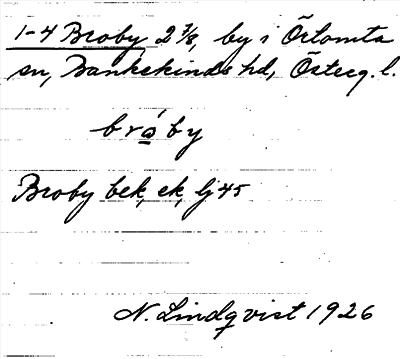 1-4 Broby 2 7/8, by i Örtomta
sn, Bankekinds hd, Österg. l.
bro̲´by
Broby bek, ek, lj 45
N. Lindqvist 1926